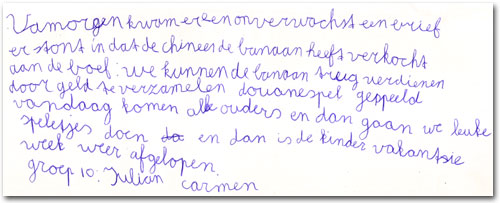 Vamorgen kwam er een onverwachst een brief
er stont in dat de chinees de banaan heeft verkocht
aan de boef: we kunnen de banaan trug verdienen
door geld te verzamelen douanespel gespeeld
vandaag komen alle ouders en dan gaan we leuke
speletjes doen en dan is de kinder vakantsie
week weer afgelopen.
groep 10: Julian carmen